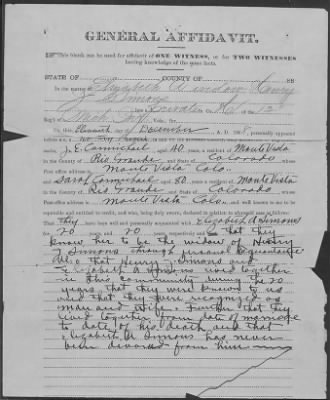 GENERAL AFFIDAVIT.
This blank can be used for affidavit of ONE WITNESS, or for TWO WITNESSES
having knowledge of the same facts.
STATE OF COUNTY OF SS
In the matter of Elizabeth A widow Henry
Simons Private Co. 12
Reg't Mich Vols.
On this Eleventh day of December A. D. 1908, personally appeared before me
J. E. Carmichael aged 40 years, a resident of Monte Vista
in the County of Rio Grande and State of Colorado
Post office address is Monte Vista Colo.
and Sarah Carmichael aged 80 years, a resident of Monte Vista
in the County of Rio Grande and State of Colorado
Post office address is Monte Vista Colo. and well known to me to be
reputable and entitled to credit, and who, being duly sworn, declared in relation to aforesaid case as follows:
That they have been well and personally acquainted with Elizabeth A Simons
for 20 years and 20 years, respectively and that they
know her to be the widow of Henry
Simons through personal acquaintance
Also that Henry Simons and
Elizabeth A Simons lived together
in this community during the 20
years that they were known to us
and that they were recognized as
man and wife. Further that they
lived together from date of marriage
to date of his death and that
Elizabeth A Simons has never
been divorced from him